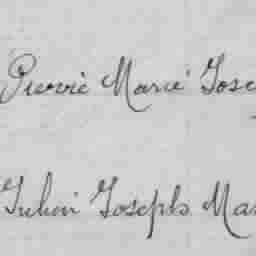 Pierre Marie Jose
Julien Joseph Mar